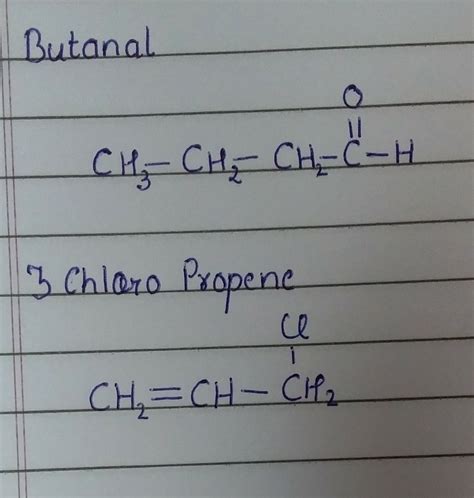 Butanal
O
||
CH₃ – CH₂ – CH₂ – C – H
3 Chloro Propene
Cl
|
CH₂ = CH – CH₂